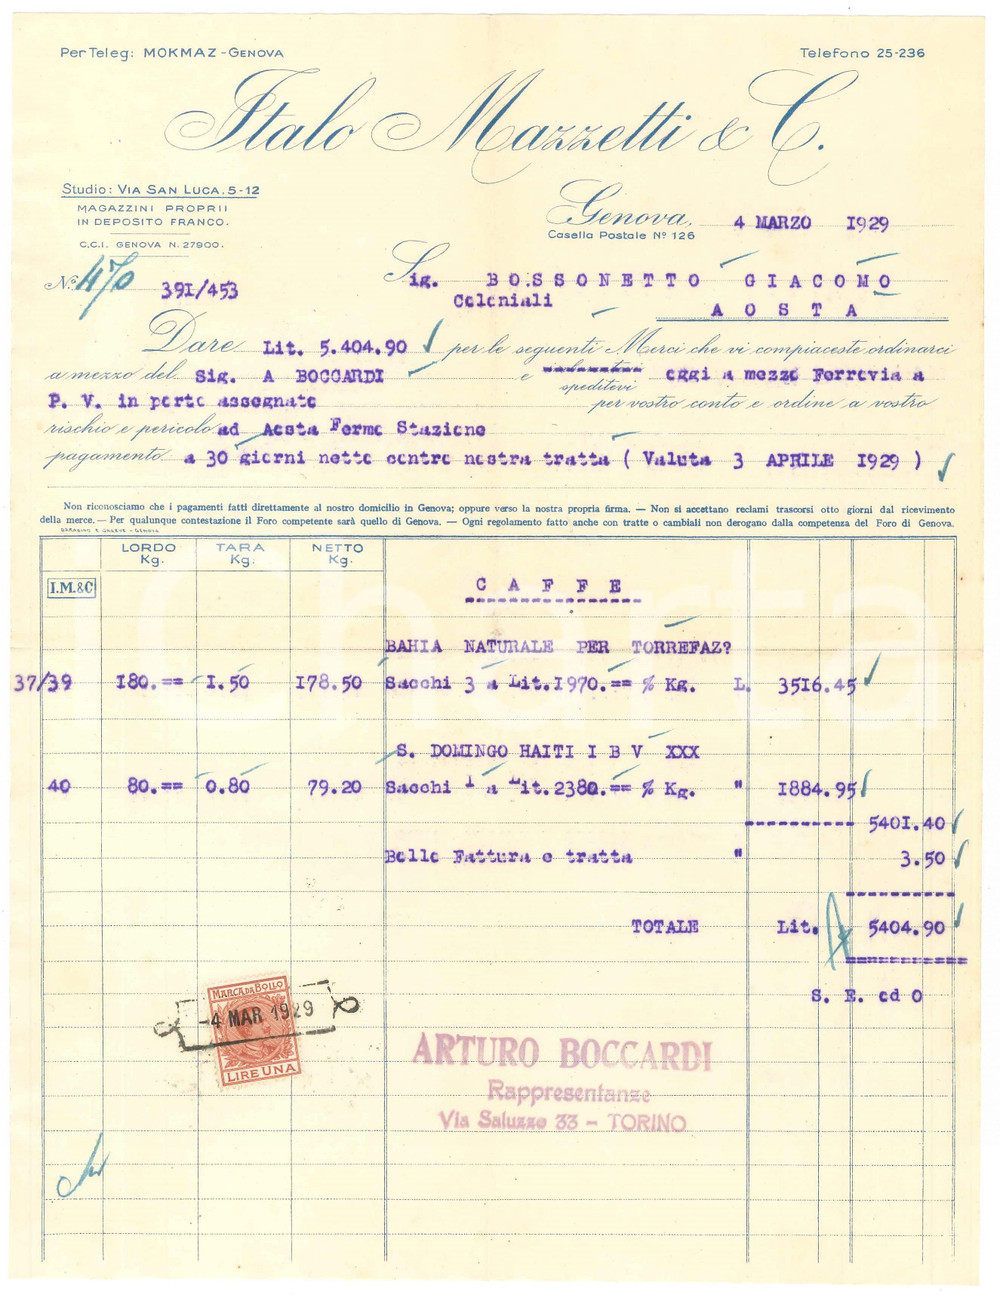 Per Teleg: MOKMAZ - GENOVA
Telefono 25-236
Italo Mazzetti & C.
Studio: VIA SAN LUCA, 5-12
MAGAZZINI PROPRII
IN DEPOSITO FRANCO.
C.C.I. GENOVA N. 27900.
Genova, 4 MARZO 1929
Casella Postale Nº 126
Nº 470 391/453
Sig. BOSSONETTO GIACOMO
Coloniali
AOSTA
Dare Lit. 5.404.90 per le seguenti Merci che vi compiaceste ordinarci
a mezzo del Sig. A BOCCARDI e speditevi oggi a mezzo Ferrovia a
P. V. in porto assegnato per vostro conto e ordine a vostro
rischio e pericolo ad Aosta Fermo Stazione
pagamento a 30 giorni netto contro nostra tratta ( Valuta 3 APRILE 1929 )
Non riconosciamo che i pagamenti fatti direttamente al nostro domicilio in Genova; oppure verso la nostra propria firma. — Non si accettano reclami trascorsi otto giorni dal ricevimento
della merce. — Per qualunque contestazione il Foro competente sarà quello di Genova. — Ogni regolamento fatto anche con tratte o cambiali non derogano dalla competenza del Foro di Genova.
LORDO Kg. TARA Kg. NETTO Kg.
I.M.&C
CAFFE
BAHIA NATURALE PER TORREFAZ?
37/39 180.== 1.50 178.50 Sacchi 3 a Lit.1970.== % Kg. L. 3516.45
S. DOMINGO HAITI I B V XXX
40 80.== 0.80 79.20 Sacchi 1 a Lit.2380.== % Kg. " 1884.95
5401.40
Bollo Fattura e tratta " 3.50
TOTALE Lit. 5404.90
S. E. ed O
MARCA DA BOLLO
-4 MAR 1929
LIRE UNA
ARTURO BOCCARDI
Rappresentanze
Via Saluzzo 33 - TORINO